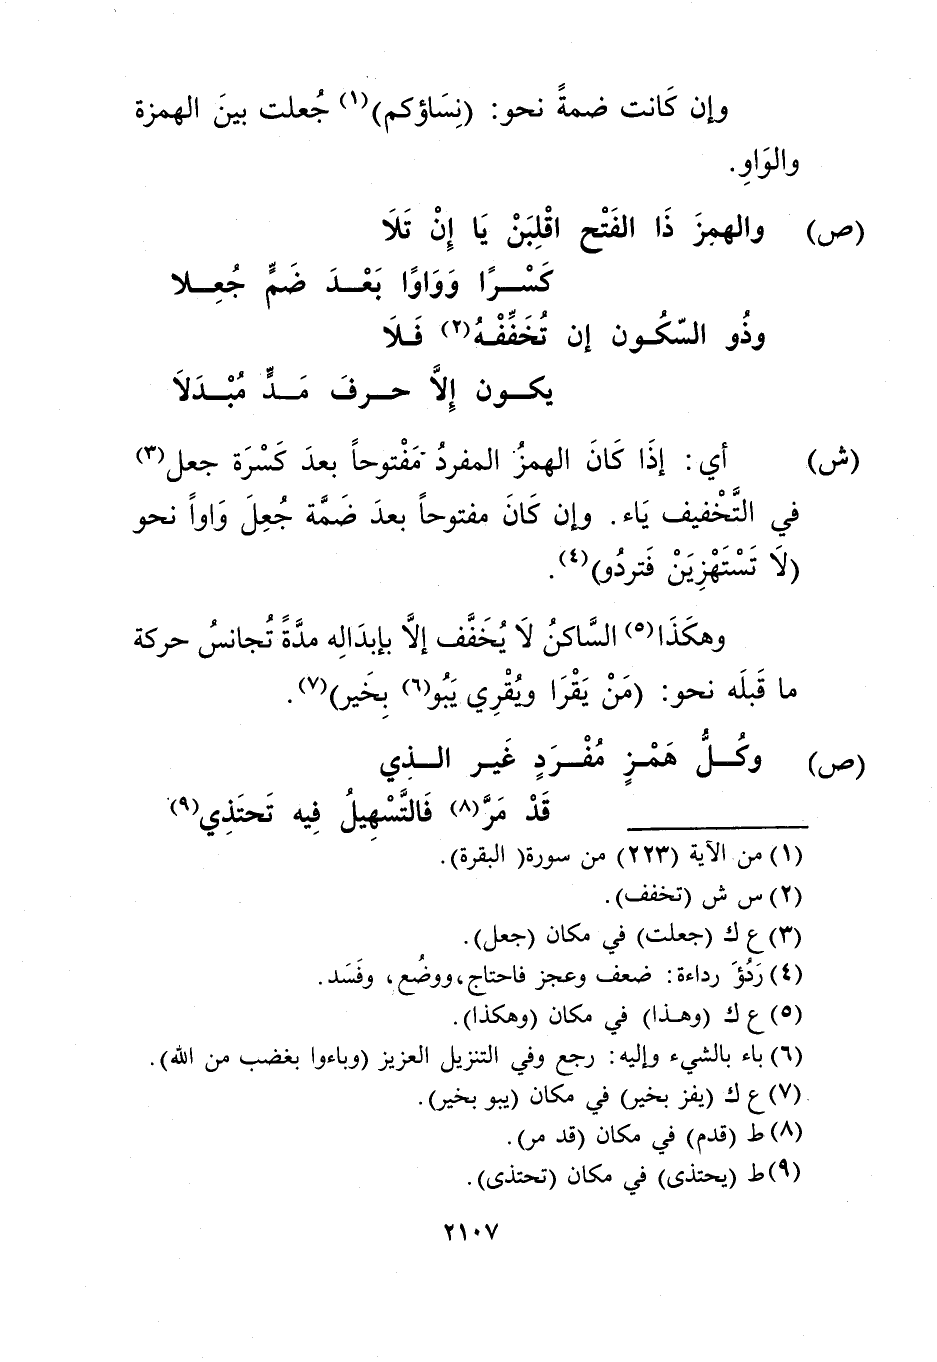 وإن كَانت ضمةً نحو: (نِسَاؤكم)(١) جُعلت بينَ الهمزة
والوَاوِ.
(ص) والهمِزَ ذَا الفَتْح اقْلِبَنْ يَا إِنْ تَلَا
كَسْـرًا وَوَاوًا بَعْـدَ ضَمٍّ جُعِـلا
وذُو السّكُـون إن تُخَفِّفْـهُ(٢) فَـلَا
يكـون إِلَّا حـرفَ مَـدٍّ مُبْـدَلَا
(ش) أي: إذَا كَانَ الهمزُ المفردُ مَفْتوحاً بعدَ كَسْرَة جعل(٣)
في التَّخْفيف يَاء. وإن كَانَ مفتوحاً بعدَ ضَمَّة جُعِلَ وَاواً نحو
(لَا تَسْتَهْزِيَنْ فَتردُو)(٤).
وهكَذَا(٥) السَّاكنُ لَا يُخَفَّف إلَّا بإبدَاله مدَّةً تُجانسُ حركة
ما قَبلَه نحو: (مَنْ يَقْرَا ويُقْرِي يَبُو(٦) بِخَير)(٧).
(ص) وكُـلُّ هَمْـزٍ مُفْـرَدٍ غَيـر الـذِي
قَدْ مَرَّ(٨) فَالتَّسْهِيلُ فِيه تَحتَذي(٩)
(١) من الآية (٢٢٣) من سورة( البقرة).
(٢) س ش (تخفف).
(٣) ع ك (جعلت) في مكان (جعل).
(٤) رَدُؤَ رداءة: ضعف وعجز فاحتاج، ووضُع، وفَسَد.
(٥) ع ك (وهـذا) في مكان (وهكذا).
(٦) باء بالشيء وإليه: رجع وفي التنزيل العزيز (وباءوا بغضب من الله).
(٧) ع ك (يفز بخير) في مكان (يبو بخير).
(٨) ط (قدم) في مكان (قد مر).
(٩) ط (يحتذى) في مكان (تحتذى).
٢١٠٧